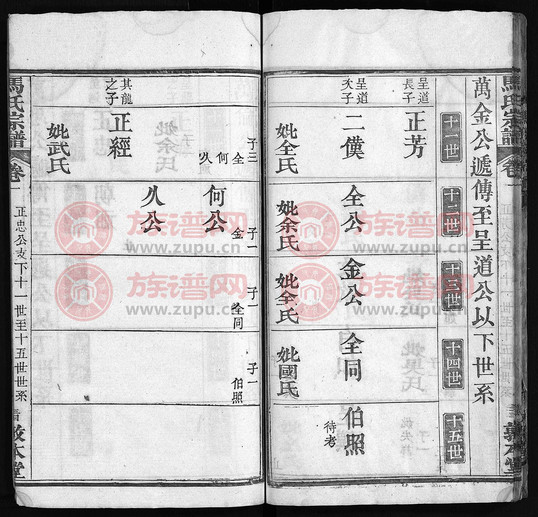 馬氏宗譜 卷一
萬金公遞傳至呈道公以下世系
十一世
十二世
十三世
十四世
十五世
呈道長子
正芳
呈道次子
二僙
妣全氏
子三
全 何 久
全公
妣余氏
子一
金
金公
妣全氏
子一
全同
全同
妣國氏
子一
伯照
伯照
待考
何公
久公
其龍之子
正經
妣武氏
馬氏宗譜
卷一
正忠公支下十一世至十五世世系
敦本堂
族谱网
www.zupu.cn
族谱网
www.zupu.cn
族谱网
www.zupu.cn
族谱网
www.zupu.cn